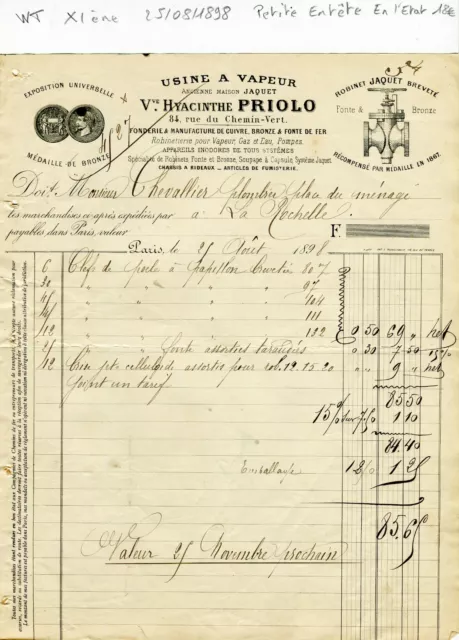 WT XIème 25/08/1898 Petite Entête En l'Etat 18€
USINE A VAPEUR
ANCIENNE MAISON JAQUET
Vve HYACINTHE PRIOLO
84, rue du Chemin-Vert.
FONDERIE & MANUFACTURE DE CUIVRE, BRONZE & FONTE DE FER
Robinetterie pour Vapeur, Gaz et Eau, Pompes.
APPAREILS INODORES DE TOUS SYSTÈMES
Spécialité de Robinets Fonte et Bronze, Soupape à Capsule, Système Jaquet.
CHASSIS A RIDEAUX _ ARTICLES DE FUMISTERIE.
EXPOSITION UNIVERSELLE
MÉDAILLE DE BRONZE
ROBINET JAQUET BREVETÉ
Fonte & Bronze
RÉCOMPENSÉ PAR MÉDAILLE EN 1867.
Doit Monsieur Chevallier plombier place du ménage
les marchandises ci-après expédiées par à La Rochelle
payables dans Paris, valeur F.
Paris, le 25 Août 1898
6 Clefs de poele à papillon 807
30 " " 97
" " 104
" " 111
1/12 " " 122 0 50 69 " net
" " fonte assorties 0 30 7 50 15%
assortis pour rob. 12.15.20 " " 9 " net
Joint un tarif
85.50
15% sur 7.50 1.10
84.40
Emballage 1.25
85.65
Valeur 25 Novembre prochain